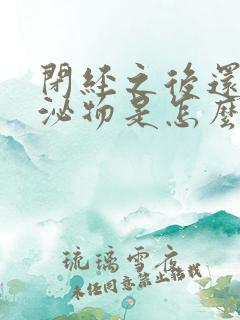 閉經之後還
泌物是怎麼
琉璃雪衣
未經同意禁止轉載